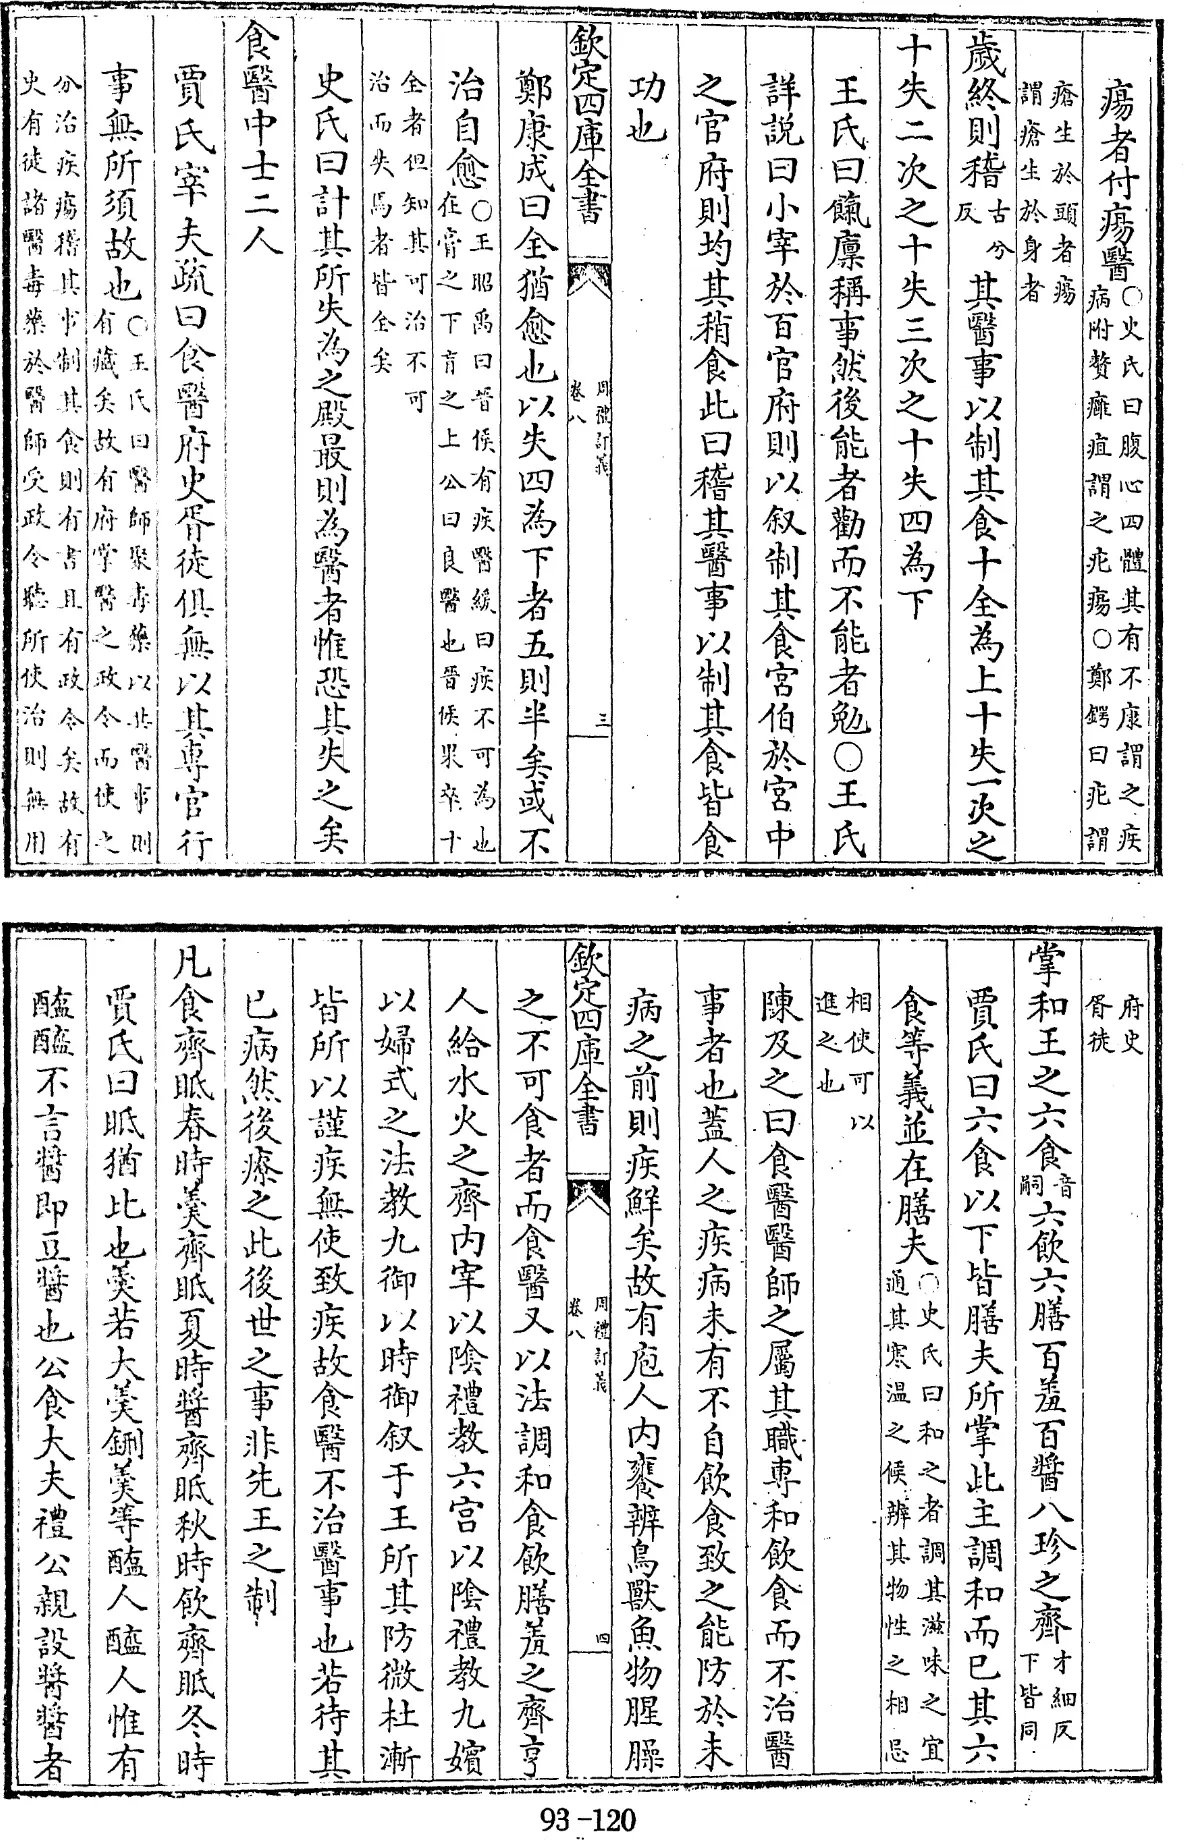 瘍者付瘍醫○史氏曰腹心四體其有不康謂之疾
病附贅癰疽謂之疕瘍○鄭鍔曰疕謂
瘡生於頭者瘍
謂瘡生於身者
歲終則稽古兮反其醫事以制其食十全為上十失一次之
十失二次之十失三次之十失四為下
王氏曰餼廩稱事然後能者勸而不能者勉○王氏
詳說曰小宰於百官府則以叙制其食宮伯於宮中
之官府則均其稍食此曰稽其醫事以制其食皆食
功也
欽定四庫全書
周禮訂義
卷八
三
鄭康成曰全猶愈也以失四為下者五則半矣或不
治自愈○王昭禹曰晉侯有疾醫緩曰疾不可為也
在膏之下肓之上公曰良醫也晉侯果卒十
全者但知其可治不可
治而失焉者皆全矣
史氏曰計其所失為之殿最則為醫者惟恐其失之矣
食醫中士二人
賈氏宰夫疏曰食醫府史胥徒俱無以其專官行
事無所須故也○王氏曰醫師聚毒藥以共醫事則
有藏矣故有府掌醫之政令而使之
分治疾瘍稽其事制其食則有書且有政令矣故有
史有徒諸醫毒藥於醫師受政令聽所使治則無用
府史
胥徒
掌和王之六食音嗣六飲六膳百羞百醬八珍之齊才細反下皆同
賈氏曰六食以下皆膳夫所掌此主調和而已其六
食等義並在膳夫○史氏曰和之者調其滋味之宜
適其寒溫之候辨其物性之相忌
相使可以
進之也
陳及之曰食醫醫師之屬其職專和飲食而不治醫
事者也蓋人之疾病未有不自飲食致之能防於未
病之前則疾鮮矣故有庖人內饔辨鳥獸魚物腥臊
欽定四庫全書
周禮訂義
卷八
四
之不可食者而食醫又以法調和食飲膳羞之齊亨
人給水火之齊內宰以陰禮教六宮以陰禮教九嬪
以婦式之法教九御以時御叙于王所其防微杜漸
皆所以謹疾無使致疾故食醫不治醫事也若待其
已病然後療之此後世之事非先王之制
凡食齊眡春時羹齊眡夏時醬齊眡秋時飲齊眡冬時
賈氏曰眡猶比也羹若大羹鉶羹等醢人醢人惟有
醢醢不言醬即豆醬也公食大夫禮公親設醬醬者
93-120